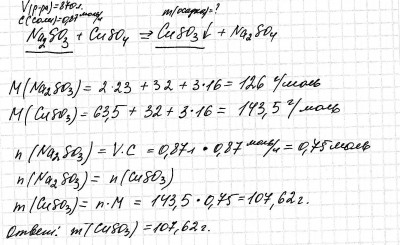 V(р-ра)=870л.
C(соли)=0,87 моль/л
m(осадка)=?
Na₂SO₃ + CuSO₄ ⇒ CuSO₃↓ + Na₂SO₄
M(Na₂SO₃) = 2·23 + 32 + 3·16 = 126 г/моль
M(CuSO₃) = 63,5 + 32 + 3·16 = 143,5 г/моль
n(Na₂SO₃) = V·C = 0,87л · 0,87 моль/л = 0,75 моль
n(Na₂SO₃) = n(CuSO₃)
m(CuSO₃) = n·M = 143,5 · 0,75 = 107,62г.
Ответ: m(CuSO₃) = 107,62г.